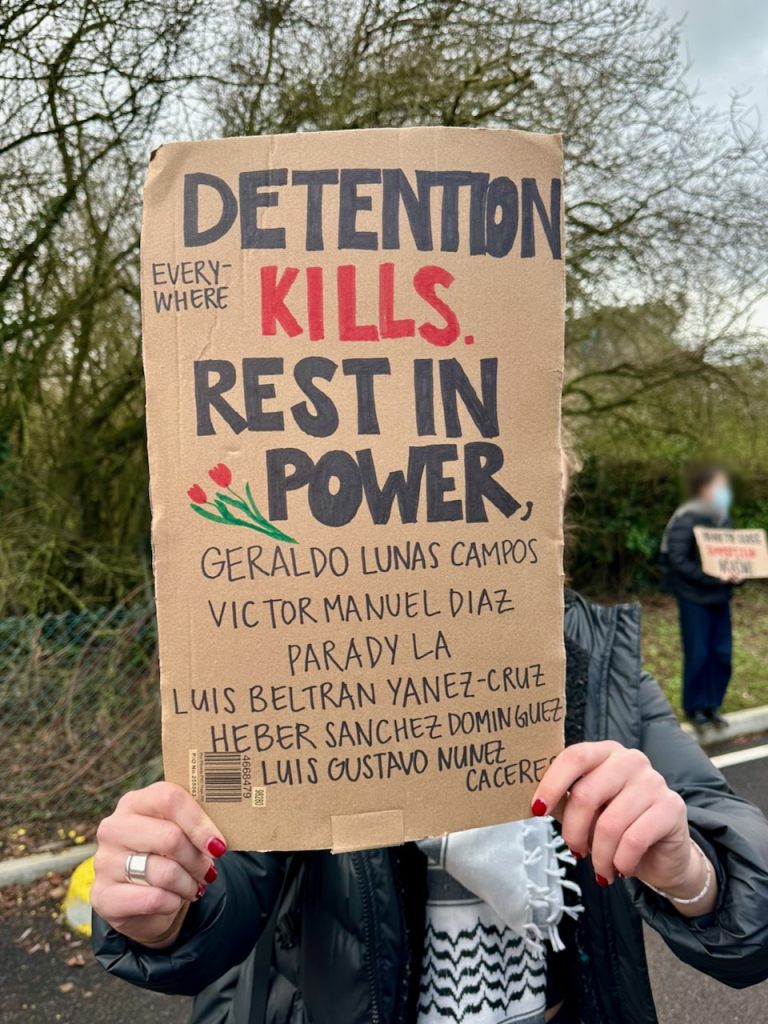 DETENTION
EVERY-
WHERE
KILLS.
REST IN
POWER,
GERALDO LUNAS CAMPOS
VICTOR MANUEL DIAZ
PARADY LA
LUIS BELTRAN YANEZ-CRUZ
HEBER SANCHEZ DOMINGUEZ
LUIS GUSTAVO NUNEZ
CACERES
4668479
98280